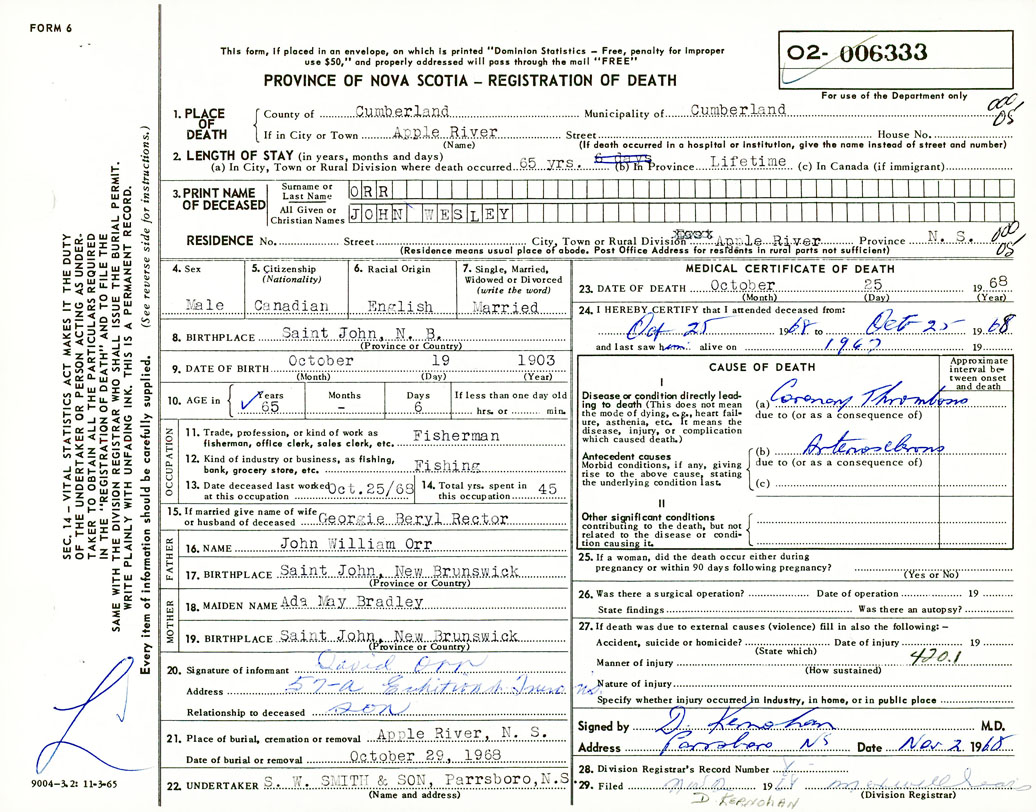 FORM 6
This form, if placed in an envelope, on which is printed "Dominion Statistics – Free, penalty for improper
use $50," and properly addressed will pass through the mail "FREE"
PROVINCE OF NOVA SCOTIA – REGISTRATION OF DEATH
02- 006333
For use of the Department only
SEC. 14 – VITAL STATISTICS ACT MAKES IT THE DUTY
OF THE UNDERTAKER OR PERSON ACTING AS UNDER-
TAKER TO OBTAIN ALL THE PARTICULARS REQUIRED
IN THE "REGISTRATION OF DEATH" AND TO FILE THE
SAME WITH THE DIVISION REGISTRAR WHO SHALL ISSUE THE BURIAL PERMIT.
WRITE PLAINLY WITH UNFADING INK. THIS IS A PERMANENT RECORD.
Every item of information should be carefully supplied. (See reverse side for instructions.)
9004–3.2: 11-3-65
1. PLACE OF DEATH
County of Cumberland Municipality of Cumberland
000
05
If in City or Town Apple River Street House No.
(Name) (If death occurred in a hospital or institution, give the name instead of street and number)
2. LENGTH OF STAY (in years, months and days)
(a) In City, Town or Rural Division where death occurred 65 yrs. 6 days (b) In Province Lifetime (c) In Canada (if immigrant)
3. PRINT NAME OF DECEASED
Surname or Last Name ORR
All Given or Christian Names JOHN WESLEY
RESIDENCE No. Street City, Town or Rural Division Apple River Province N. S.
000
05
(Residence means usual place of abode. Post Office Address for residents in rural parts not sufficient)
4. Sex
Male
5. Citizenship (Nationality)
Canadian
6. Racial Origin
English
7. Single, Married, Widowed or Divorced (write the word)
Married
8. BIRTHPLACE Saint John, N. B.
(Province or Country)
9. DATE OF BIRTH October 19 1903
(Month) (Day) (Year)
10. AGE in Years 65 Months – Days 6 If less than one day old hrs. or min.
OCCUPATION
11. Trade, profession, or kind of work as fisherman, office clerk, sales clerk, etc. Fisherman
12. Kind of industry or business, as fishing, bank, grocery store, etc. Fishing
13. Date deceased last worked at this occupation Oct.25/68
14. Total yrs. spent in this occupation 45
15. If married give name of wife or husband of deceased Georgie Beryl Rector
FATHER
16. NAME John William Orr
17. BIRTHPLACE Saint John, New Brunswick
(Province or Country)
MOTHER
18. MAIDEN NAME Ada May Bradley
19. BIRTHPLACE Saint John, New Brunswick
(Province or Country)
20. Signature of informant David Orr
Address 57-A
Relationship to deceased son
21. Place of burial, cremation or removal Apple River, N. S.
Date of burial or removal October 29, 1968
22. UNDERTAKER S. W. SMITH & SON, Parrsboro, N.S
(Name and address)
MEDICAL CERTIFICATE OF DEATH
23. DATE OF DEATH October 25 1968
(Month) (Day) (Year)
24. I HEREBY CERTIFY that I attended deceased from:
Oct 25 1968 to Oct 25 1968
and last saw him alive on 196 19
CAUSE OF DEATH
Approximate interval between onset and death
I
Disease or condition directly leading to death (This does not mean the mode of dying, e.g., heart failure, asthenia, etc. It means the disease, injury, or complication which caused death.)
(a) Coronary Thrombosis
due to (or as a consequence of)
Antecedent causes
Morbid conditions, if any, giving rise to the above cause, stating the underlying condition last.
(b) Arteriosclerosis
due to (or as a consequence of)
(c)
II
Other significant conditions
contributing to the death, but not related to the disease or condition causing it.
25. If a woman, did the death occur either during
pregnancy or within 90 days following pregnancy?
(Yes or No)
26. Was there a surgical operation? Date of operation 19
State findings Was there an autopsy?
27. If death was due to external causes (violence) fill in also the following: –
Accident, suicide or homicide? Date of injury 19
(State which) 420.1
Manner of injury
(How sustained)
Nature of injury
Specify whether injury occurred in Industry, in home, or in public place
Signed by D. Kernohan M.D.
Address Parrsboro NS Date Nov. 2 1968
28. Division Registrar's Record Number
29. Filed 19
(Division Registrar)
D. KERNOHAN